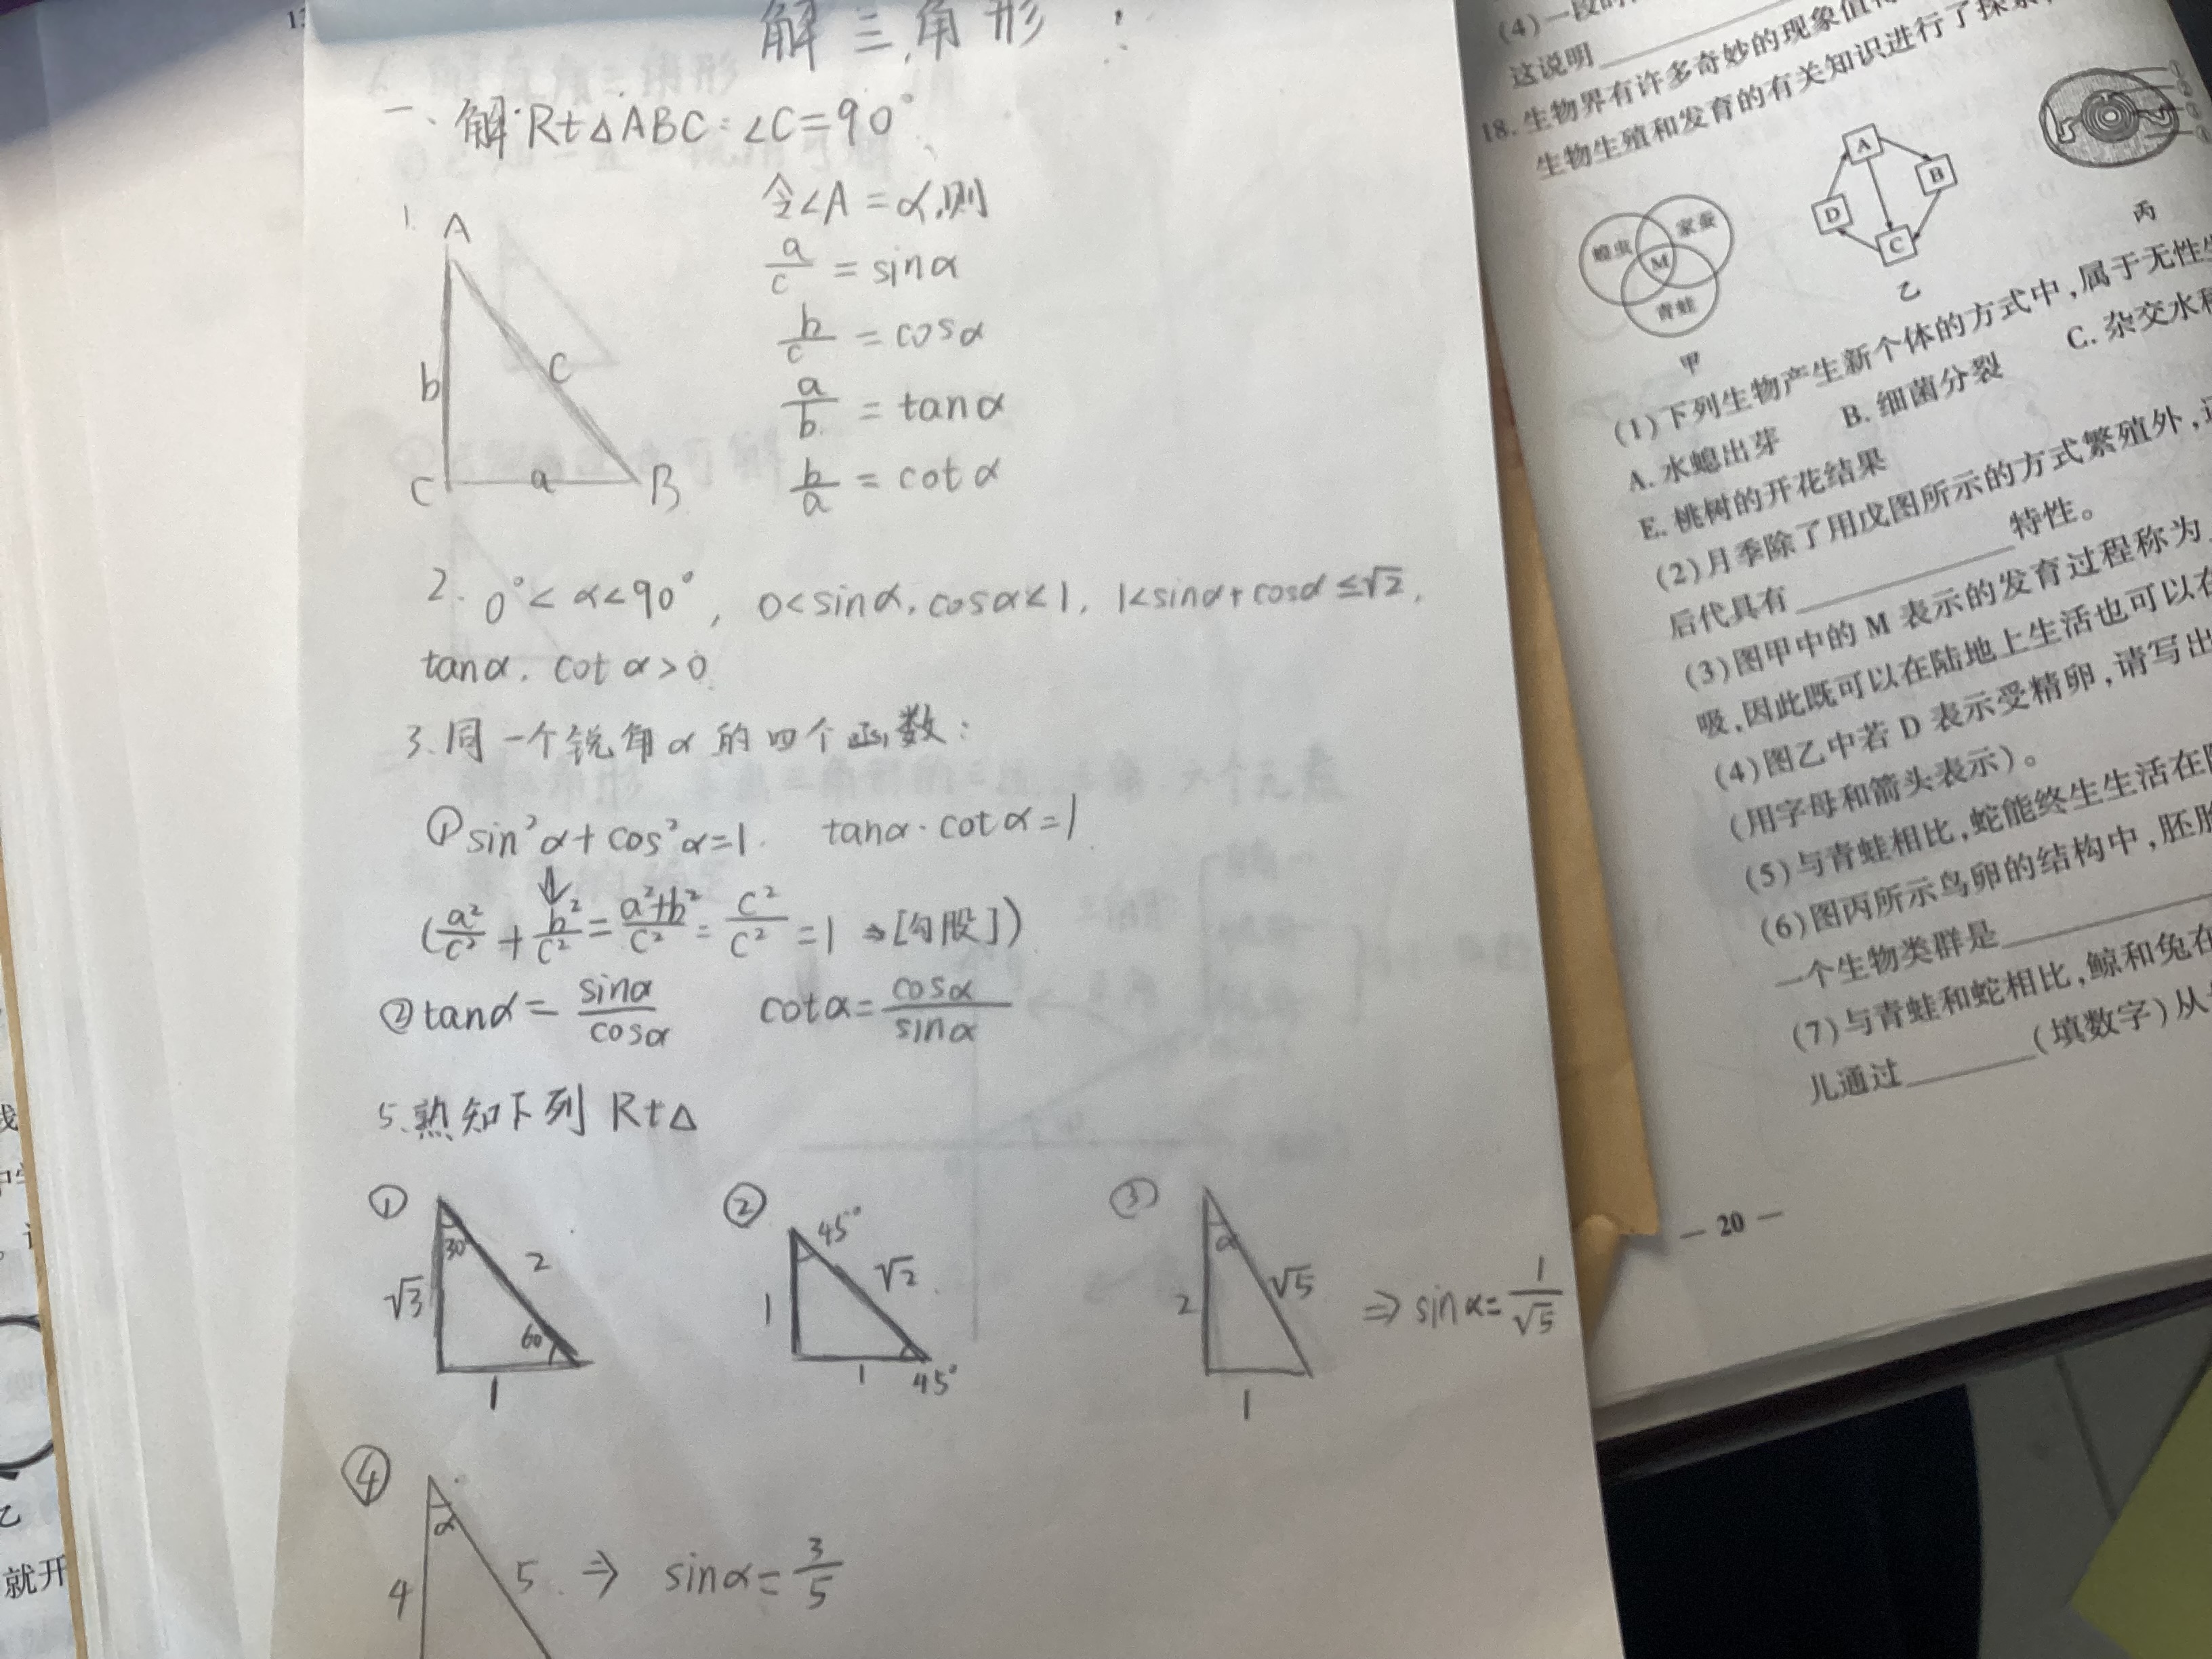 解三角形:
一、解Rt△ABC:∠C=90°
1.
A
b
c
C
a
B
令∠A=α,则
a/c = sinα
b/c = cosα
a/b = tanα
b/a = cotα
2. 0°<α<90°, 0<sinα,cosα<1, 1<sinα+cosα≤√2,
tanα, cotα>0.
3.同一个锐角α的四个函数:
①sin²α+cos²α=1. tanα·cotα=1
⇓
(a²/c²+b²/c²=(a²+b²)/c²=c²/c²=1 ⇒[勾股])
②tanα=sinα/cosα cotα=cosα/sinα
5.熟知下列Rt△
①
30
√3
2
60
1
②
45°
1
√2
1
45°
③
α
2
√5
1
⇒sinα=1/√5
④
α
4
5
⇒ sinα=3/5
(4)一段的
这说明
18.生物界有许多奇妙的现象值
生物生殖和发育的有关知识进行了探索
蝗虫
家蚕
M
青蛙
甲
A
B
D
C
乙
丙
(1)下列生物产生新个体的方式中,属于无性生
A.水螅出芽 B.细菌分裂 C.杂交水
E.桃树的开花结果
(2)月季除了用戊图所示的方式繁殖外,
后代具有 特性。
(3)图甲中的M表示的发育过程称为
吸,因此既可以在陆地上生活也可以在
(4)图乙中若D表示受精卵,请写出
(用字母和箭头表示)。
(5)与青蛙相比,蛇能终生生活在
(6)图丙所示鸟卵的结构中,胚胎
一个生物类群是
(7)与青蛙和蛇相比,鲸和兔在
儿通过 (填数字)从
— 20 —
乙
就开